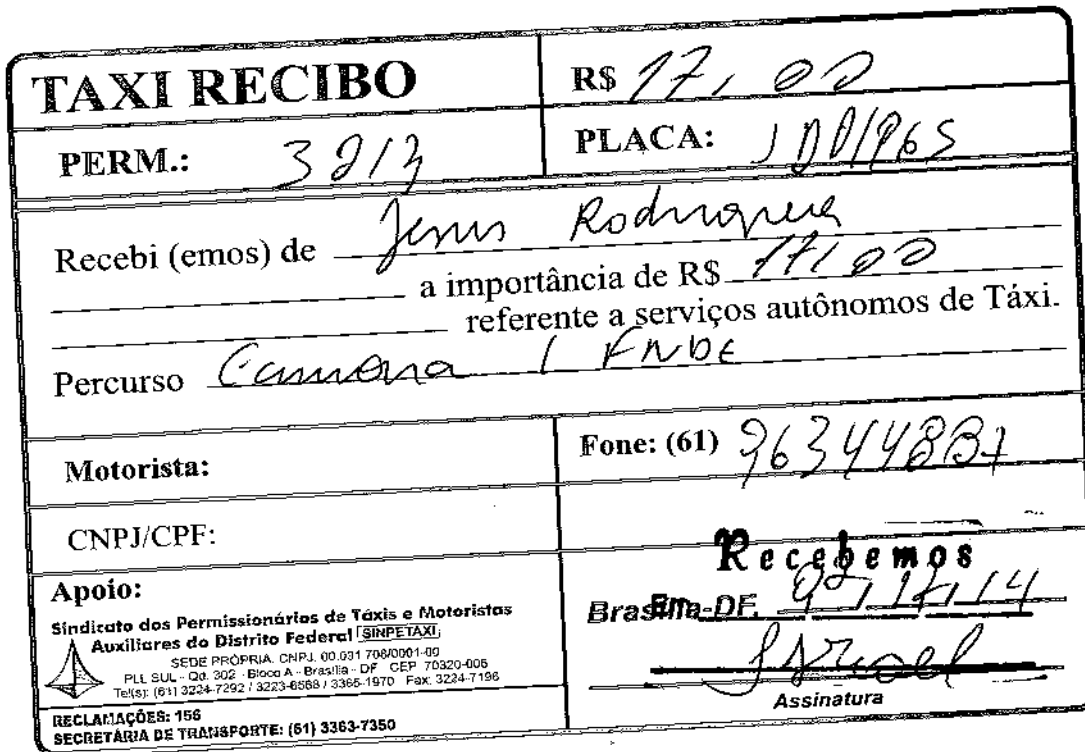 TAXI RECIBO
R$ 17,00
PERM.: 3213
PLACA:
Recebi (emos) de Jesus Rodrigues
a importância de R$ 17,00
referente a serviços autônomos de Táxi.
Percurso Camara / FNDE
Motorista:
Fone: (61) 96344887
CNPJ/CPF:
Recebemos
Apoio:
Sindicato dos Permissionários de Táxis e Motoristas
Auxiliares do Distrito Federal SINPETAXI
SEDE PRÓPRIA. CNPJ. 00.031 708/0001-00
PLL SUL - Qd. 302 - Bloco A - Brasília - DF CEP 70320-006
Tel(s): (61) 3224-7292 / 3223-6568 / 3365-1970 Fax: 3224-7196
Brasília-DF, 02/12/14
Em
Israel
Assinatura
RECLAMAÇÕES: 156
SECRETARIA DE TRANSPORTE: (61) 3363-7350